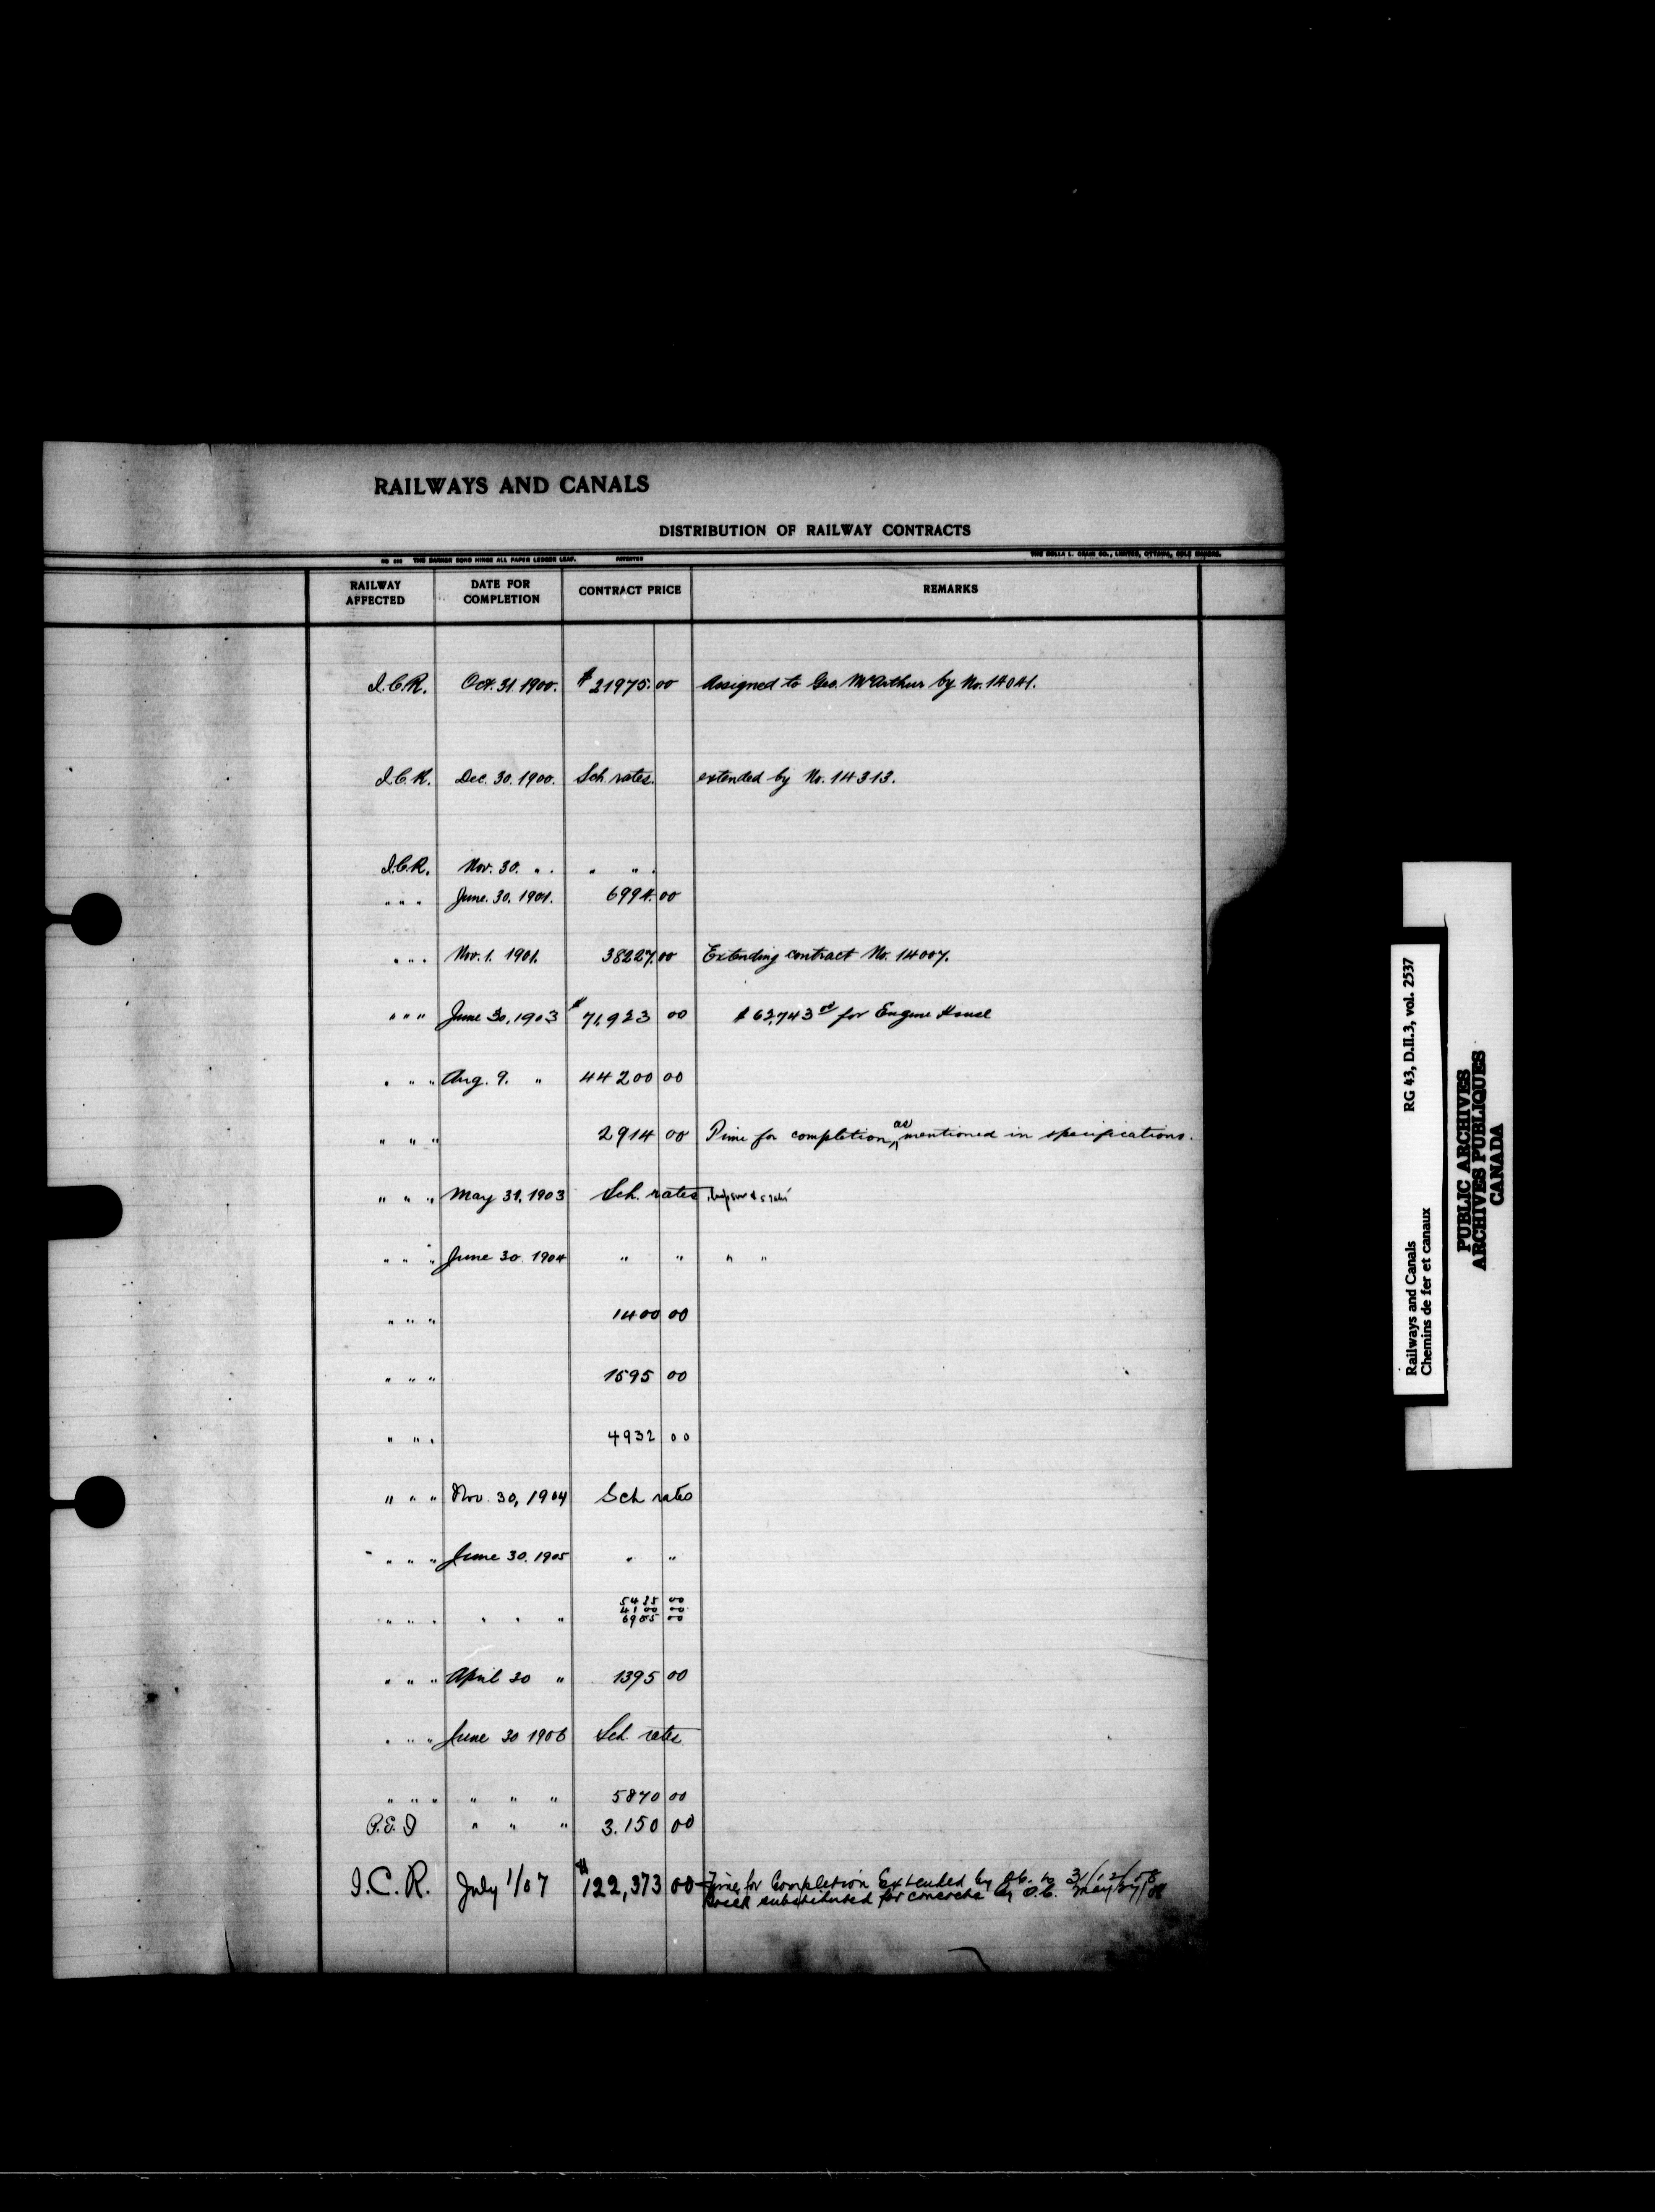 RAILWAYS AND CANALS
DISTRIBUTION OF RAILWAY CONTRACTS
RAILWAY AFFECTED DATE FOR COMPLETION CONTRACT PRICE REMARKS
I.C.R. Oct. 31. 1900. $21975.00 Assigned to Geo. McArthur by No. 14041.
I.C.R. Dec. 30. 1900. Sch. rates. extended by No. 14313.
I.C.R. Nov. 30. " . " " .
" " " June. 30. 1901. 6994.00
" " " Nov. 1. 1901. 38227.00 Extending contract No. 14007.
" " " June 30, 1903 $71,923 00 $62,743 00 for Engine House
" " " Aug. 9. " 44200 00
" " " 2914 00 Time for completion, as mentioned in specifications.
" " " May 31, 1903 Sch. rates
" " " June 30 1904 " " " "
" " " 1400 00
" " " 1595 00
" " " 4932 00
" " " Nov. 30, 1904 Sch rates
" " " June 30. 1905 " "
5425 00
4100 00
" " " " " " 6905 00
" " " April 30 " 1395 00
" " " June 30 1906 Sch. rates
" " " " " " 5870 00
P.E.I " " " 3.150 00
I.C.R. July 1/07 $122,373 00 Time for Completion Extended by O.C. to 31/12/08
Brick substituted for concrete by O.C. May/27/08
RG 43, D.II.3, vol. 2537
Railways and Canals
Chemins de fer et canaux
PUBLIC ARCHIVES
ARCHIVES PUBLIQUES
CANADA